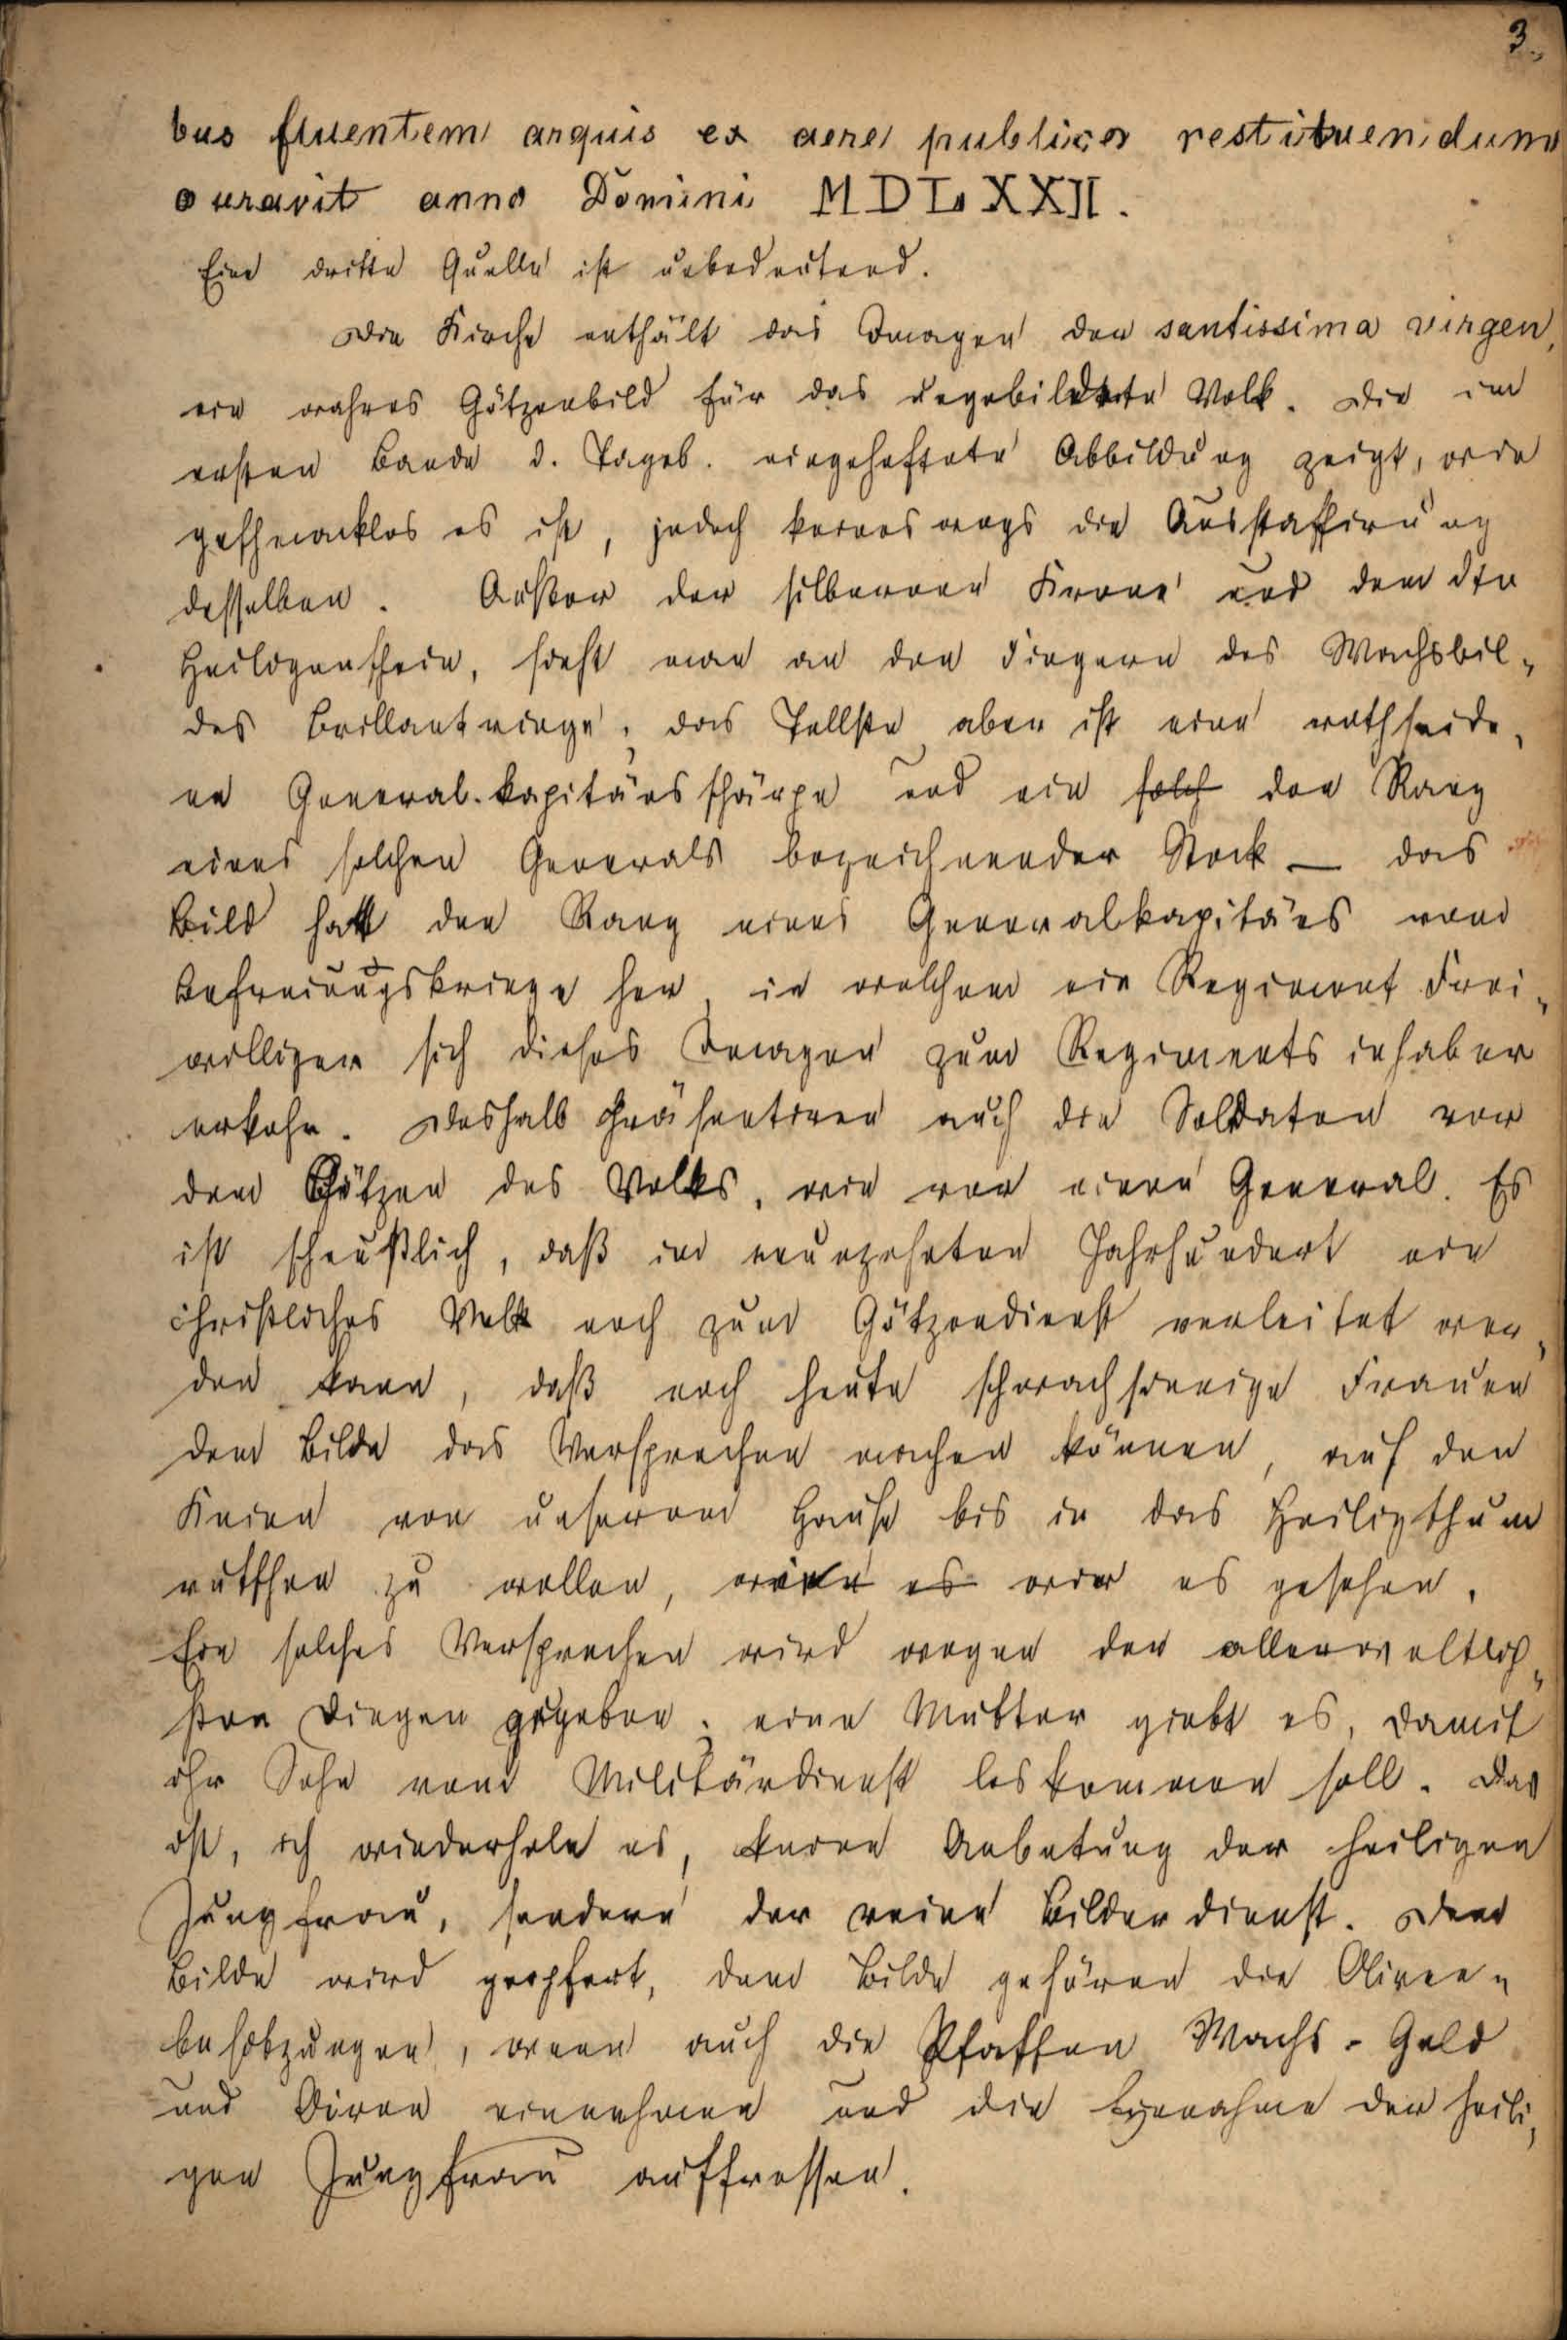 3.
bus fluentem arquis ex aere publico restituendum
curavit anno Domini MDLXXII.
Eine dritte Quelle ist unbedeutend.
Die Kirche enthält das Imagen der santissima virgen,
ein wahres Götzenbild für das ungebildete Volk. Die im
ersten Bande d. Tageb. eingeheftete Abbildung zeigt, wie
geschmacklos es ist, jedoch keineswegs die Ausstaffirung
desselben. Außer der silbernen Krone und dem
Heiligenschein, sieht man an den Fingern des Wachsbil-
des Brillantringe, das Tollste aber ist eine rothseide-
ne General-kapitänsschärpe und ein solch den Rang
eines solchen Generals bezeichnender Stock — das
Bild hat den Rang eines Generalkapitäns vom
Befreiungskriege her, in welchem ein Regiment Frei-
williger sich dieses Imagen zum Regimentsinhaber
erkohr. Deshalb präsentiren auch die Soldaten vor
dem Götzen des Volks, wie vor einem General. Es
ist scheußlich, daß im neunzehnten Jahrhundert ein
christliches Volk noch zum Götzendienst verleitet wer-
den kann, daß noch heute schwachsinnige Frauen
dem Bilde das Versprechen machen können, auf den
Knieen von unserem Hause bis in das Heiligthum
rutschen zu wollen, wie es wir es gesehen.
Ein solches Versprechen wird wegen der allerweltlich-
sten Dingen gegeben; eine Mutter giebt es, damit
ihr Sohn vom Militärdienst loskommen soll. Das
ist, ich wiederhole es, keine Anbetung der heiligen
Jungfrau, sondern der reine Bilderdienst. Dem
Bilde wird geopfert, dem Bilde gehören die Oliven-
besitzungen, wenn auch die Pfaffen Wachs- Geld
und Oliven einnehmen und die Einnahme der heili-
gen Jungfrau auffressen.